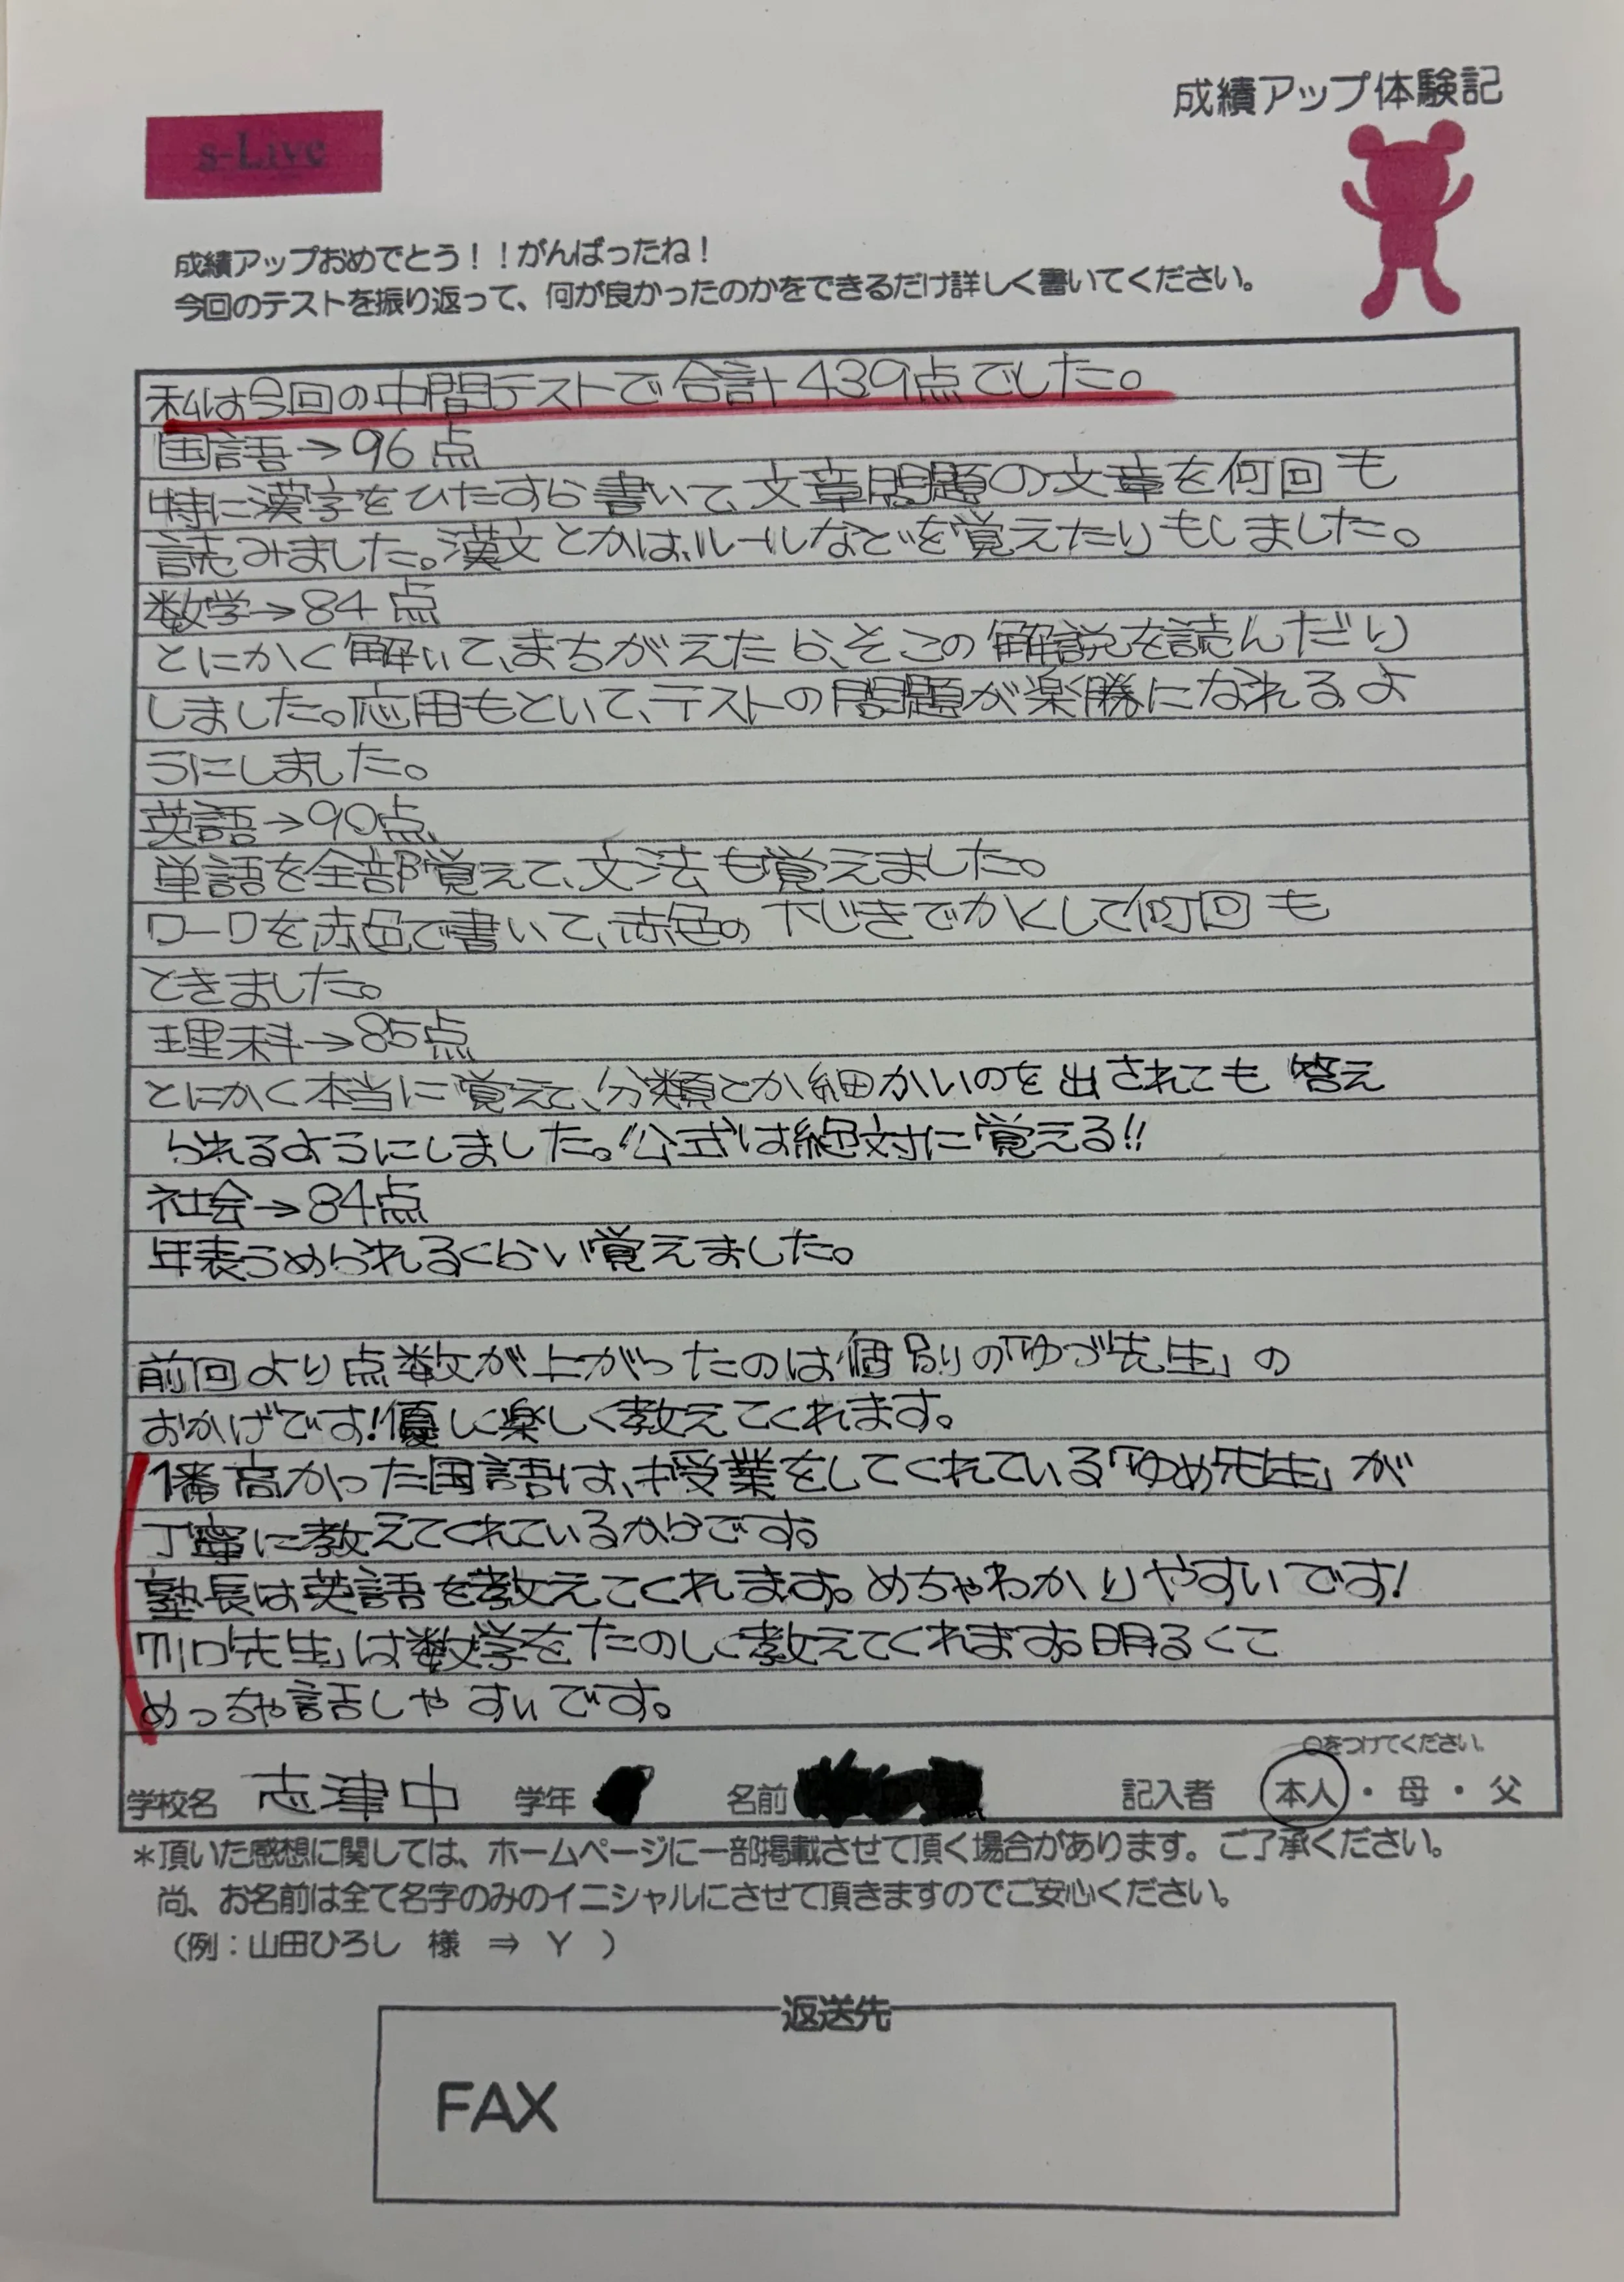 成績アップ体験記
s-Live
成績アップおめでとう！！がんばったね！
今回のテストを振り返って、何が良かったのかをできるだけ詳しく書いてください。
私は今回の中間テストで合計439点でした。
国語→96点
特に漢字をひたすら書いて、文章問題の文章を何回も
読みました。漢文とかは、ルールなどを覚えたりもしました。
数学→84点
とにかく解いて、まちがえたら、そこの解説を読んだり
しました。応用もといて、テストの問題が楽勝になれるよ
うにしました。
英語→90点
単語を全部覚えて、文法も覚えました。
ワークを赤色で書いて、赤色の下じきでかくして何回も
ときました。
理科→85点
とにかく本当に覚えて、分類とか細かいのを出されても答え
られるようにしました。公式は絶対に覚える!!
社会→84点
年表うめられるくらい覚えました。
前回より点数が上がったのは個別の「ゆづ先生」の
おかげです!優しく楽しく教えてくれます。
1番高かった国語は、授業をしてくれている「ゆめ先生」が
丁寧に教えてくれているからです。
塾長は英語を教えてくれます。めちゃわかりやすいです!
先生」は数学をたのしく教えてくれます。明るくて
めっちゃ話しやすいです。
○をつけてください。
学校名 志津中 学年 名前 記入者 本人・母・父
＊頂いた感想に関しては、ホームページに一部掲載させて頂く場合があります。ご了承ください。
尚、お名前は全て名字のみのイニシャルにさせて頂きますのでご安心ください。
（例：山田ひろし 様 ⇒ Y ）
返送先
FAX